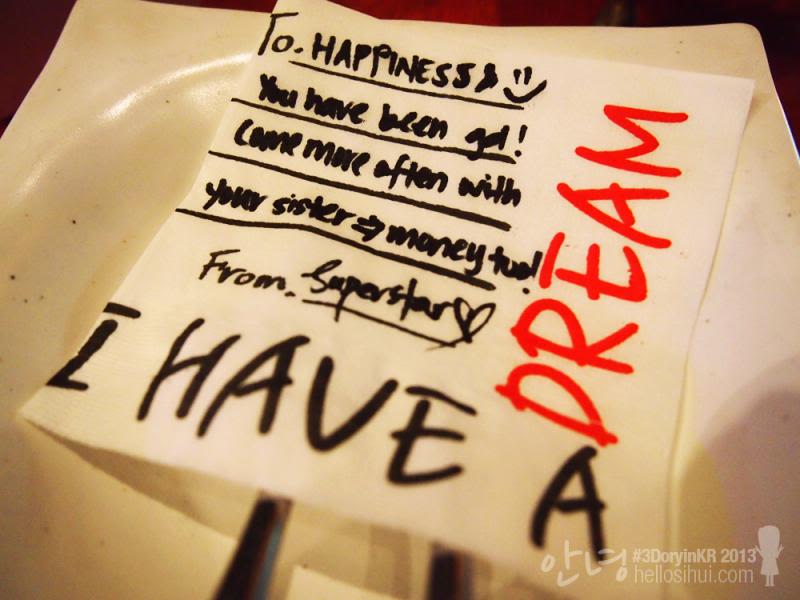 To. HAPPINESS
You have been gd!
Come more often with
your sister => money too!
From. Superstar♡
I HAVE A
DREAM
안녕
#3DoryinKR 2013
hellosihui.com